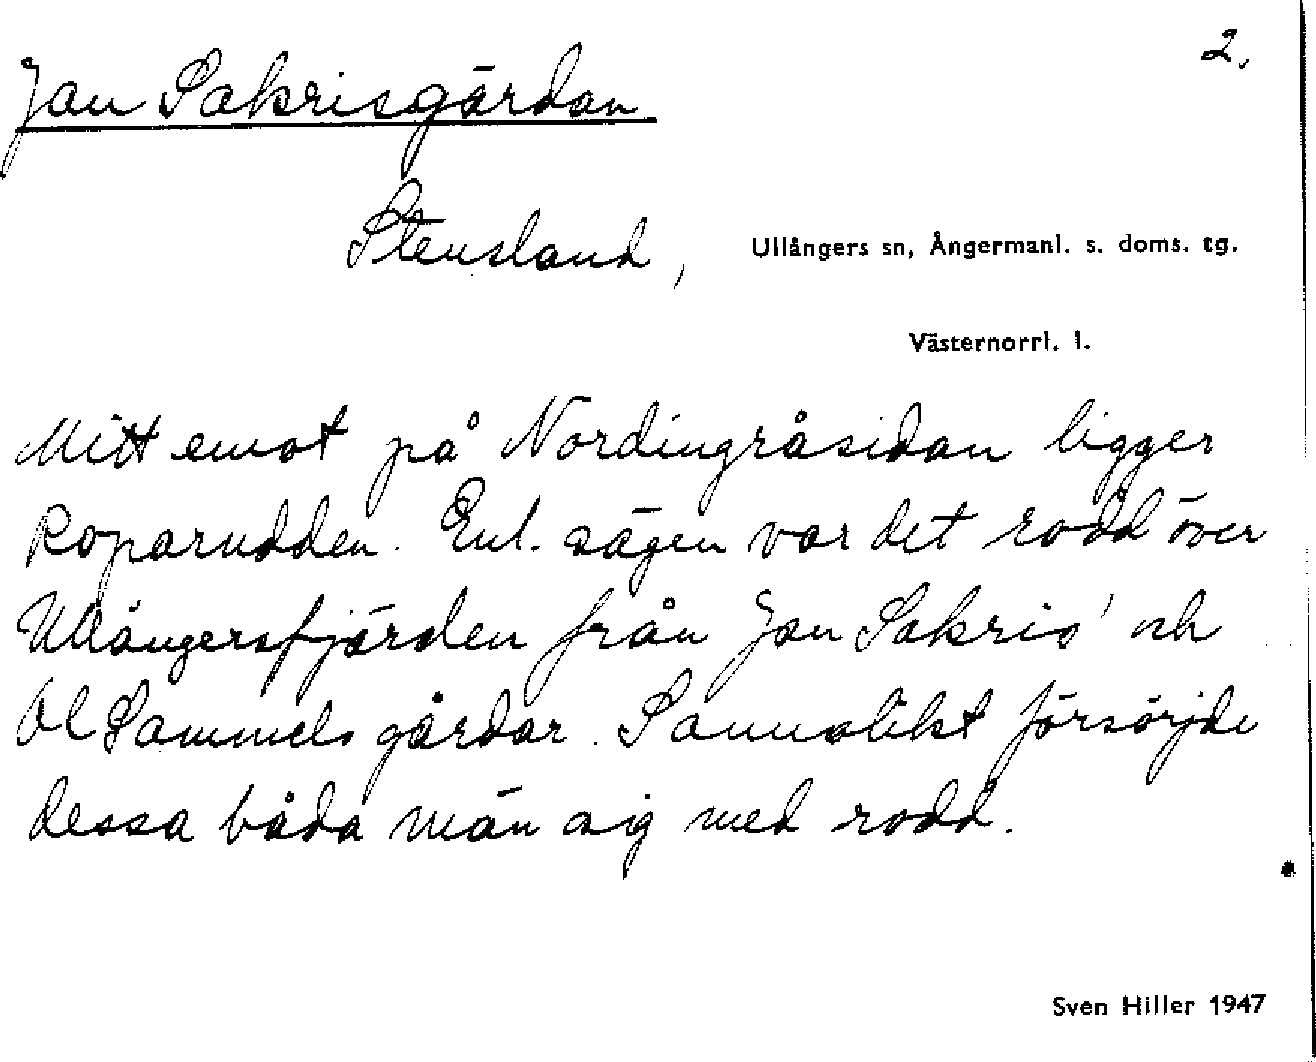 2.
Jan Sakrisgårdan
Stensland,
Ullångers sn, Ångermanl. s. doms. tg.
Västernorrl. l.
Mitt emot på Nordingråsidan ligger
Roparudden. Enl. sägen var det rodd över
Ullångersfjärden från Jan Sakris' och
Ol Sammels gårdar. Sannolikt försörjde
dessa båda män sig med rodd.
Sven Hiller 1947